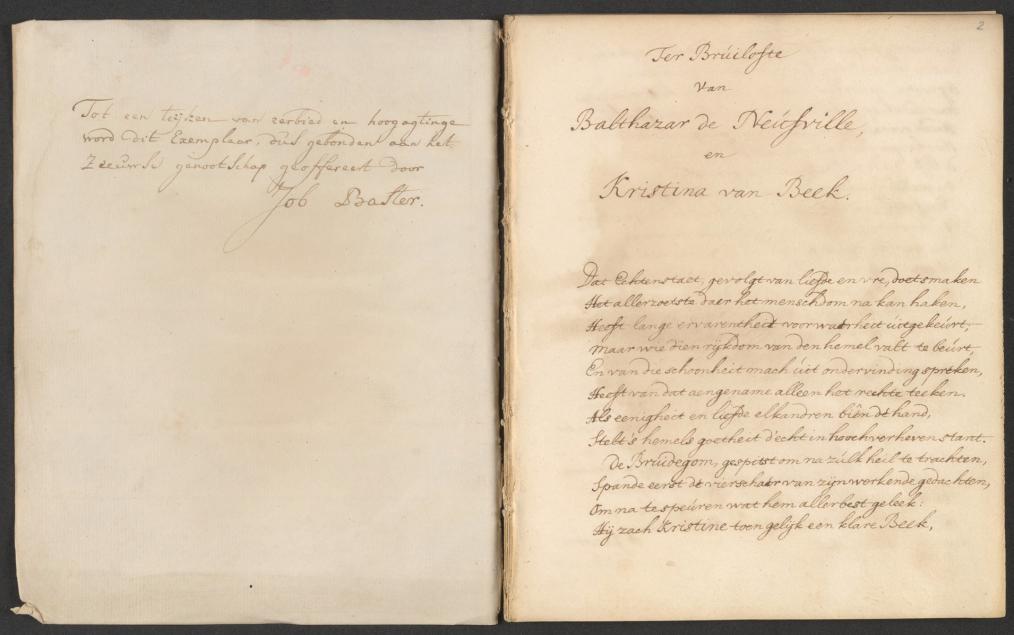 Tot een teijken van eerbied en hoogagtinge
word dit Exemplaar, dus gebonden aan het
Zeeuwse genootschap geoffereert door
Job Baster.
2
Ter Brúilofte
van
Balthazar de Neúfville,
en
Kristina van Beek.
Dat Echtenstaet, gevolgt van liefde en vre, doet smaken
Het allerzoetste daer het menschdom na kan haken,
Heeft lange ervarentheit voor waerheit úitgekeúrt,
Maar wie dien rijkdom van den hemel valt te beúrt,
En van die schoonheit mach úit ondervinding spreken,
Heeft van dat aengename alleen het rechte teeken.
Als eenigheit en liefde elkandren biên de hand,
Stelt's hemels goetheit d'echt in hooch verheven stant.
De Brúidegom, gespitst om na zúlk heil te trachten,
Spande eerst de vierschaer van zijn werkende gedachten,
Om na te speúren wat hem allerbest geleek:
Hij zach Kristine toen gelijk een klare Beek,